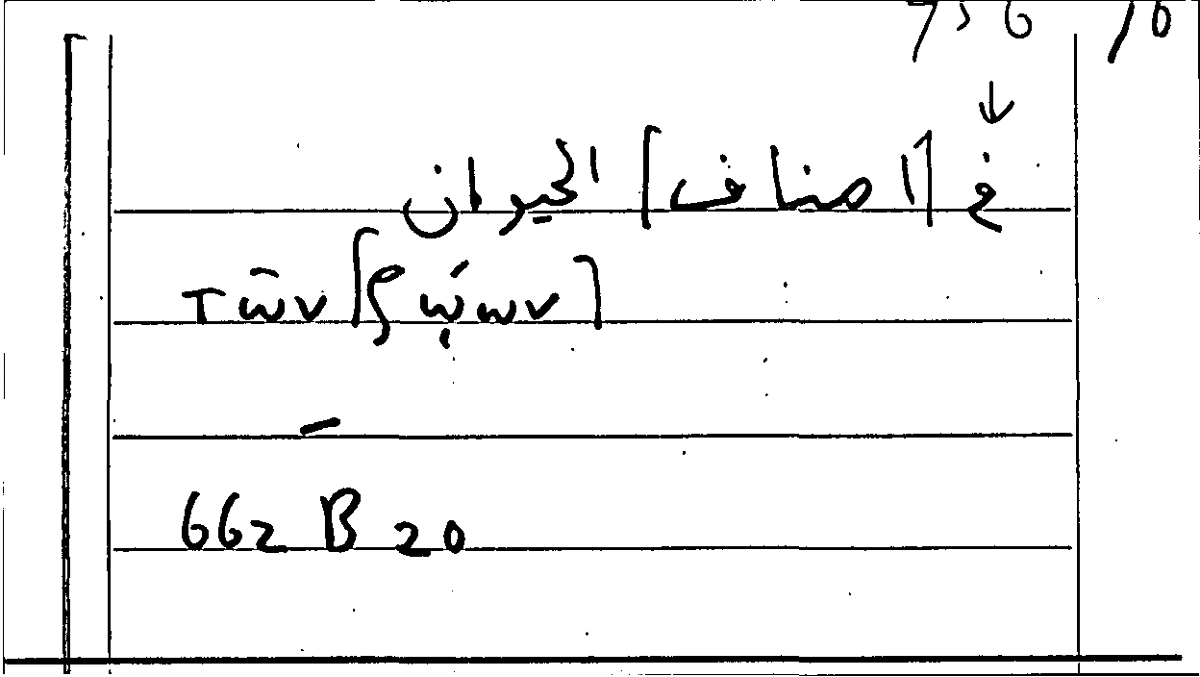 في [اصناف] الحيوان
τῶν [ζῴων]
–
662 B 20